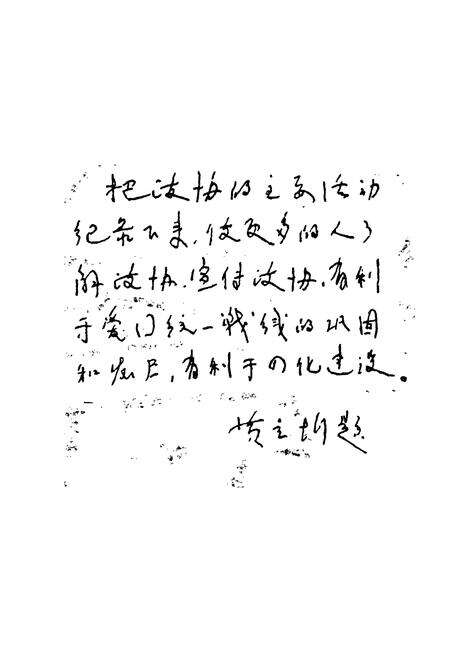 把政协的主要活动
纪录下来，使更多的人了
解政协，宣传政协，有利
于爱国统一战线的巩固
和发展，有利于四化建设。
黄立彬题